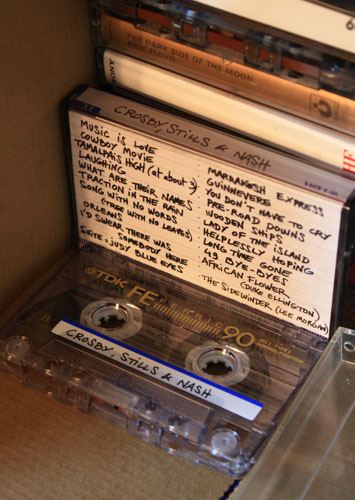 THE DARK SIDE OF THE MOON
PINK FLOYD
SONY
CROSBY, STILLS & NASH
MUSIC IS LOVE
COWBOY MOVIE
TAMALPAIS HIGH (at about 3)
LAUGHING
WHAT ARE THEIR NAMES
TRACTION IN THE RAIN
SONG WITH NO WORDS
(TREE WITH NO LEAVES)
ORLEANS
I'D SWEAR THERE WAS
SOMEBODY HERE
SUITE: JUDY BLUE EYES
MARRAKESH EXPRESS
GUINNEVERE
YOU DON'T HAVE TO CRY
PRE-ROAD DOWNS
WOODEN SHIPS
LADY OF THE ISLAND
HELPLESSLY HOPING
LONG TIME GONE
49 BYE-BYES
AFRICAN FLOWER
(DUKE ELLINGTON)
THE SIDEWINDER (LEE MORGAN)
TDK FE 90
CROSBY, STILLS & NASH